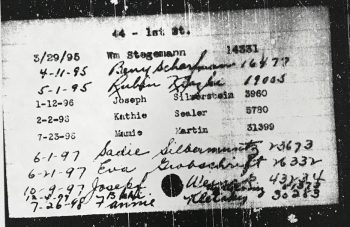 44 - 1st St.
3/29/95 Wm Stegemann 14331
4-11-95 Benj Scharfman 16477
5-1-95 Rubin 19005
1-12-96 Joseph Silverstein 3960
2-2-96 Kathie Sealer 5780
7-23-96 Mamie Martin 31399
6-1-97 Sadie Silbermuntz 23673
6-21-97 Eva Grobschrift 26332
10-9-97 Joseph 43234
7-26-98 Fannie Kletzky 30283